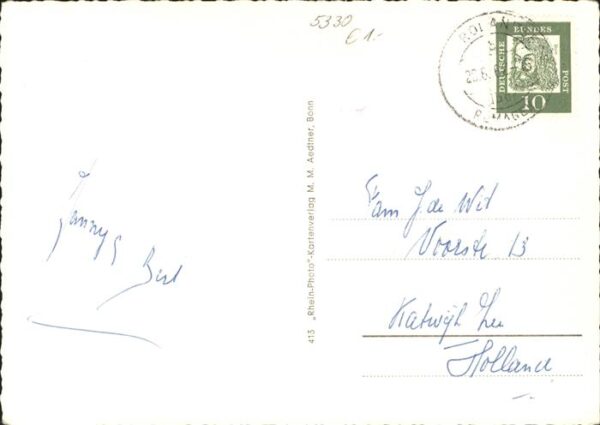 5330
€ 1.-
DEUTSCHE
BUNDES
POST
10
Fam J. de Wit
Voorstr 13
Katwijk Zee
Holland
Janny &
Bert
413 „Rhein-Photo"-Kartenverlag M. M. Aedtner, Bonn